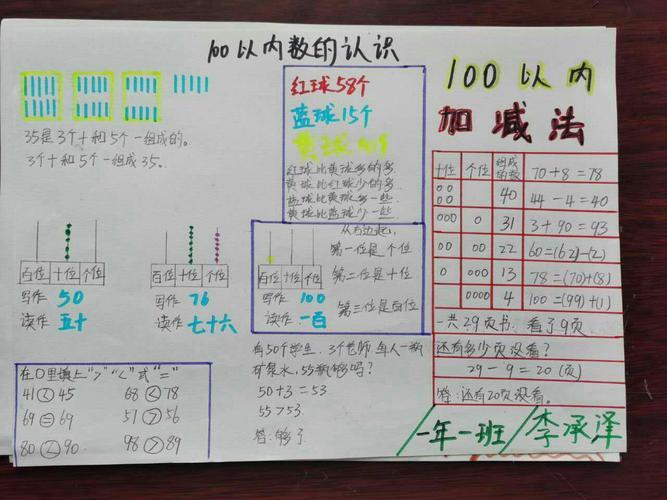 100以内数的认识
35是3个十和5个一组成的。
3个十和5个一组成35。
红球58个
蓝球15个
黄球
红球比黄球多的多
黄球比红球少的多
蓝球比黄球多一些
黄球比蓝球少一些
百位 十位 个位
写作 50
读作 五十
百位 十位 个位
写作 76
读作 七十六
百位 十位 个位
写作 100
读作 一百
从右边起,
第一位是个位
第二位是十位
第三位是百位
在〇里填上">""<"或"="
41<45 68<78
69=69 51>56
80<90 98>89
有50个学生,3个老师 每人一瓶
矿泉水,55瓶够吗?
50+3=53
55>53
答:够了
100以内
加减法
十位 个位 组成的数 70+8=78
00 00 40 44-4=40
000 0 31 3+90=93
00 00 22 60=(62)-(2)
0 000 13 78=(70)+(8)
0000 4 100=(99)+(1)
一共29页书,看了9页
还有多少页没看?
29-9=20(页)
答:还有20页没看。
一年一班/李承泽